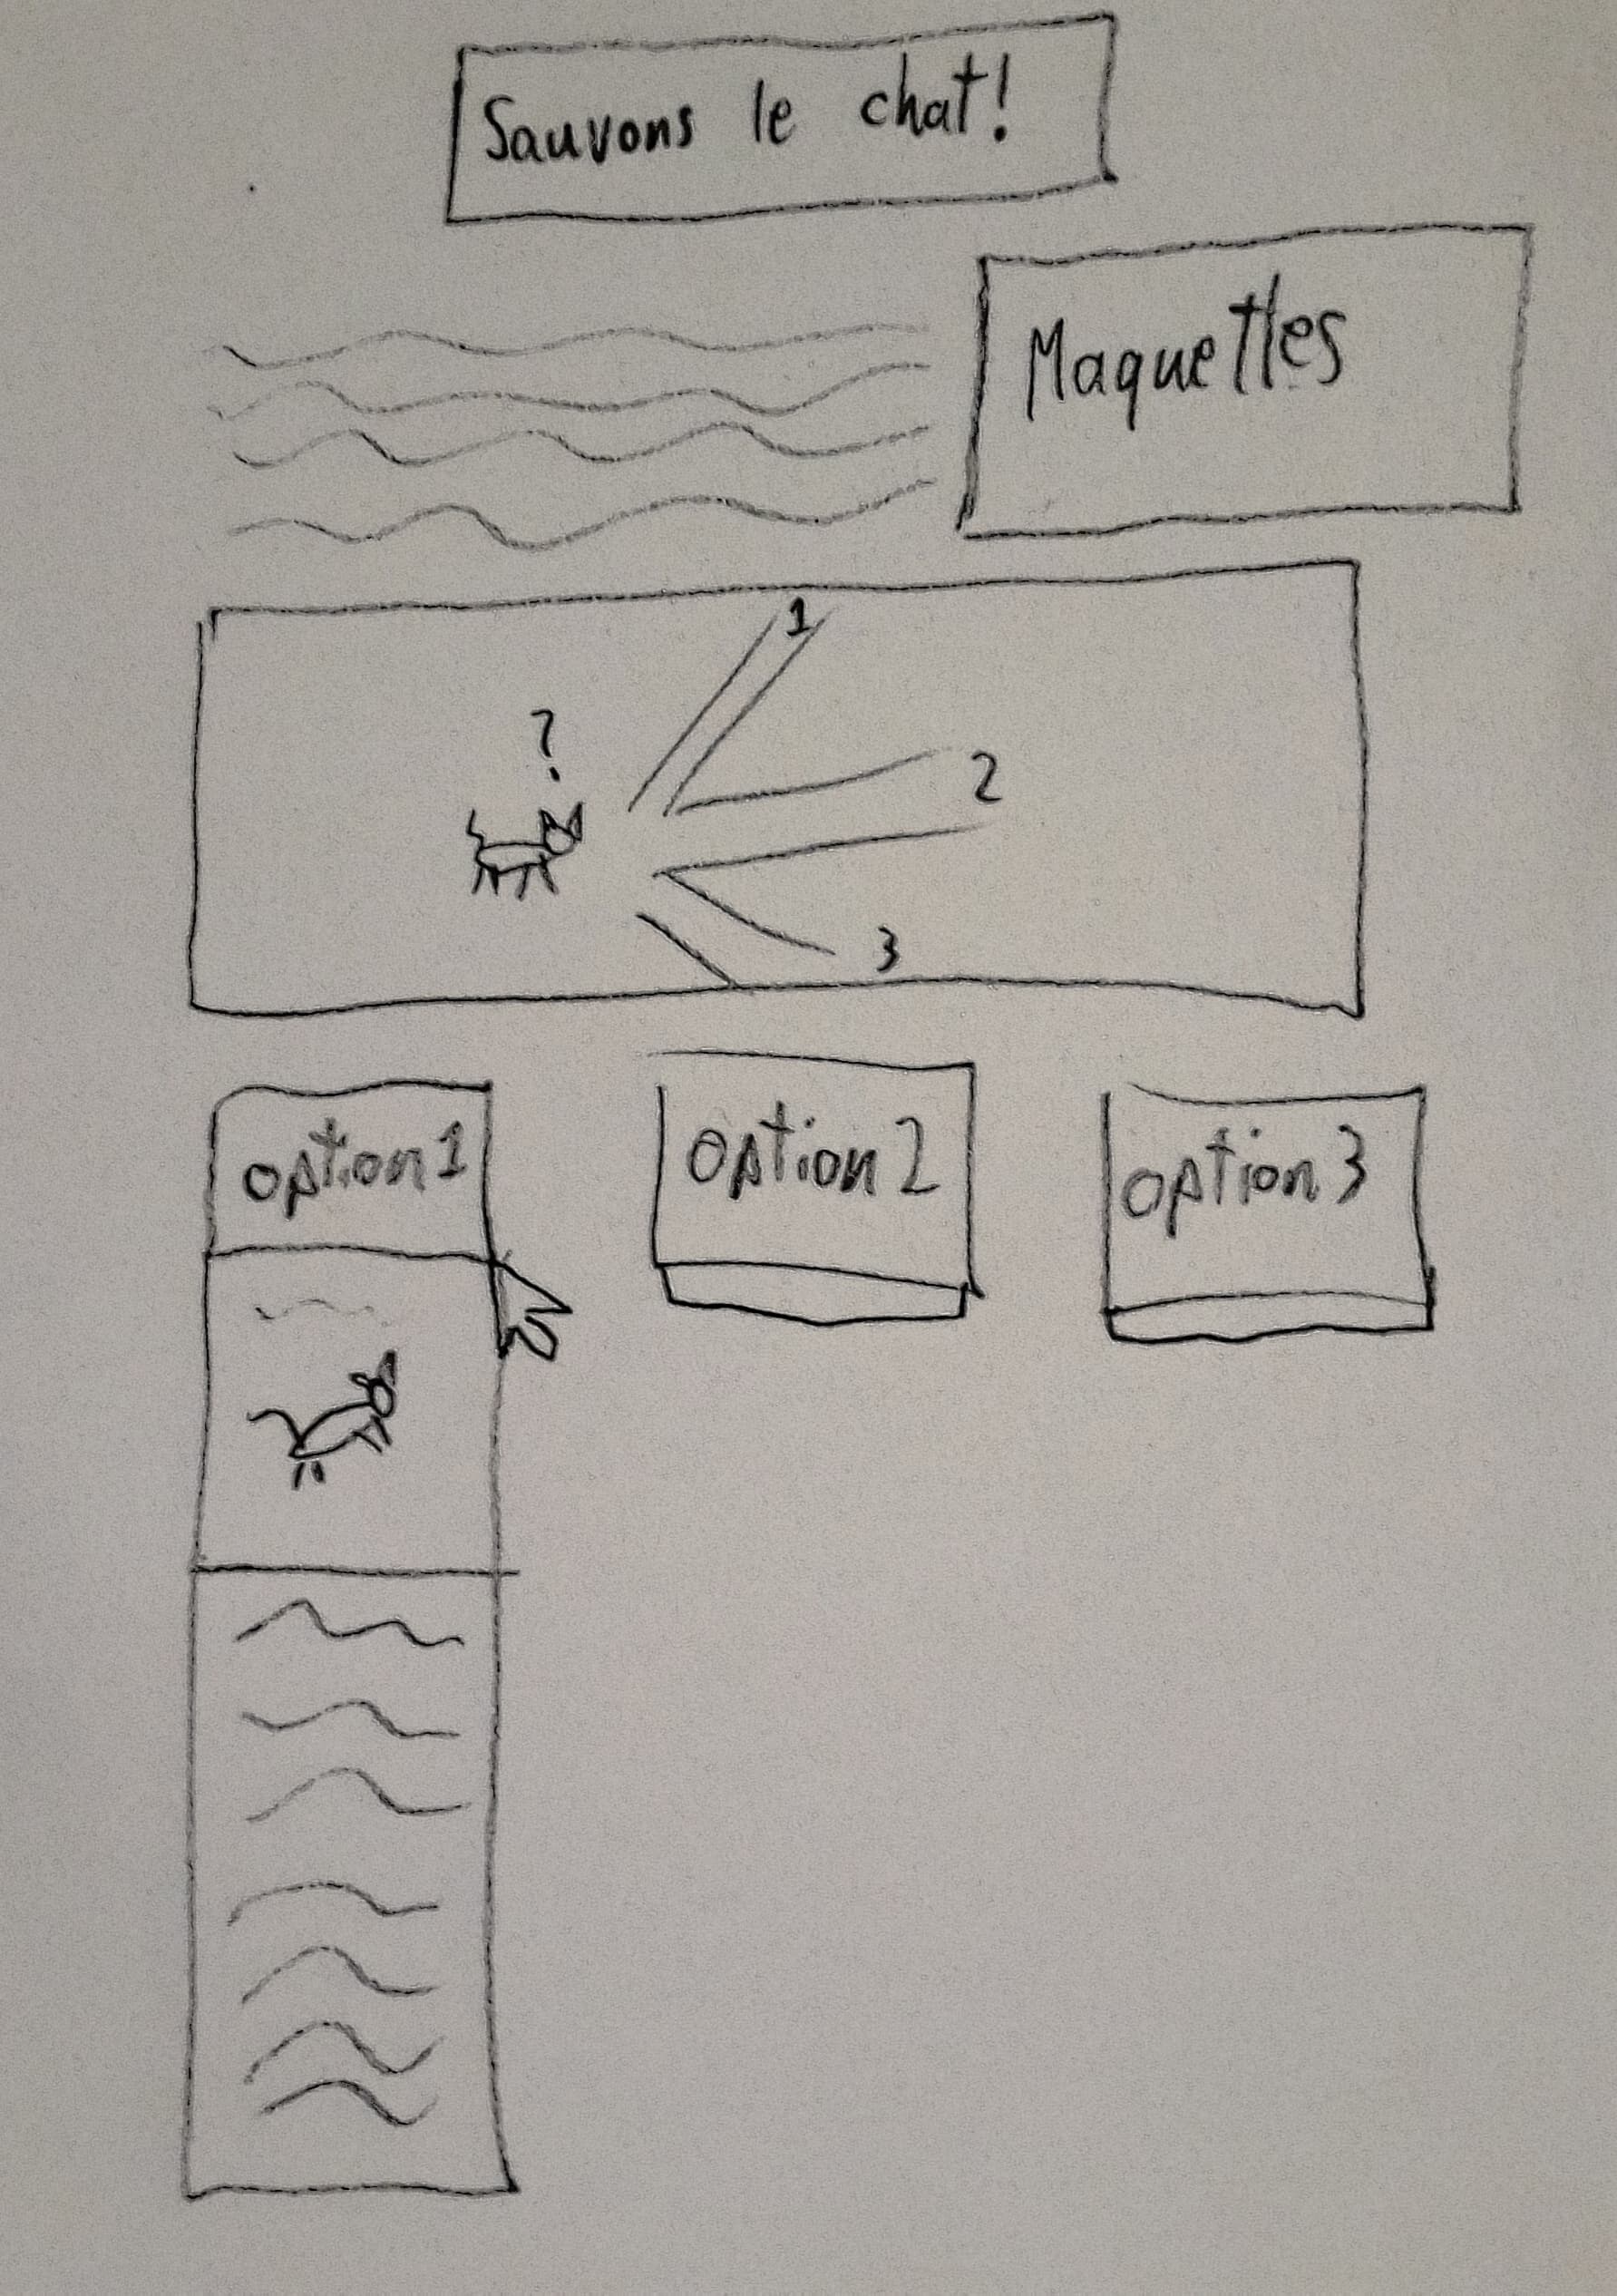 Sauvons le chat!
Maquettes
1
?
2
3
option 1
option 2
option 3